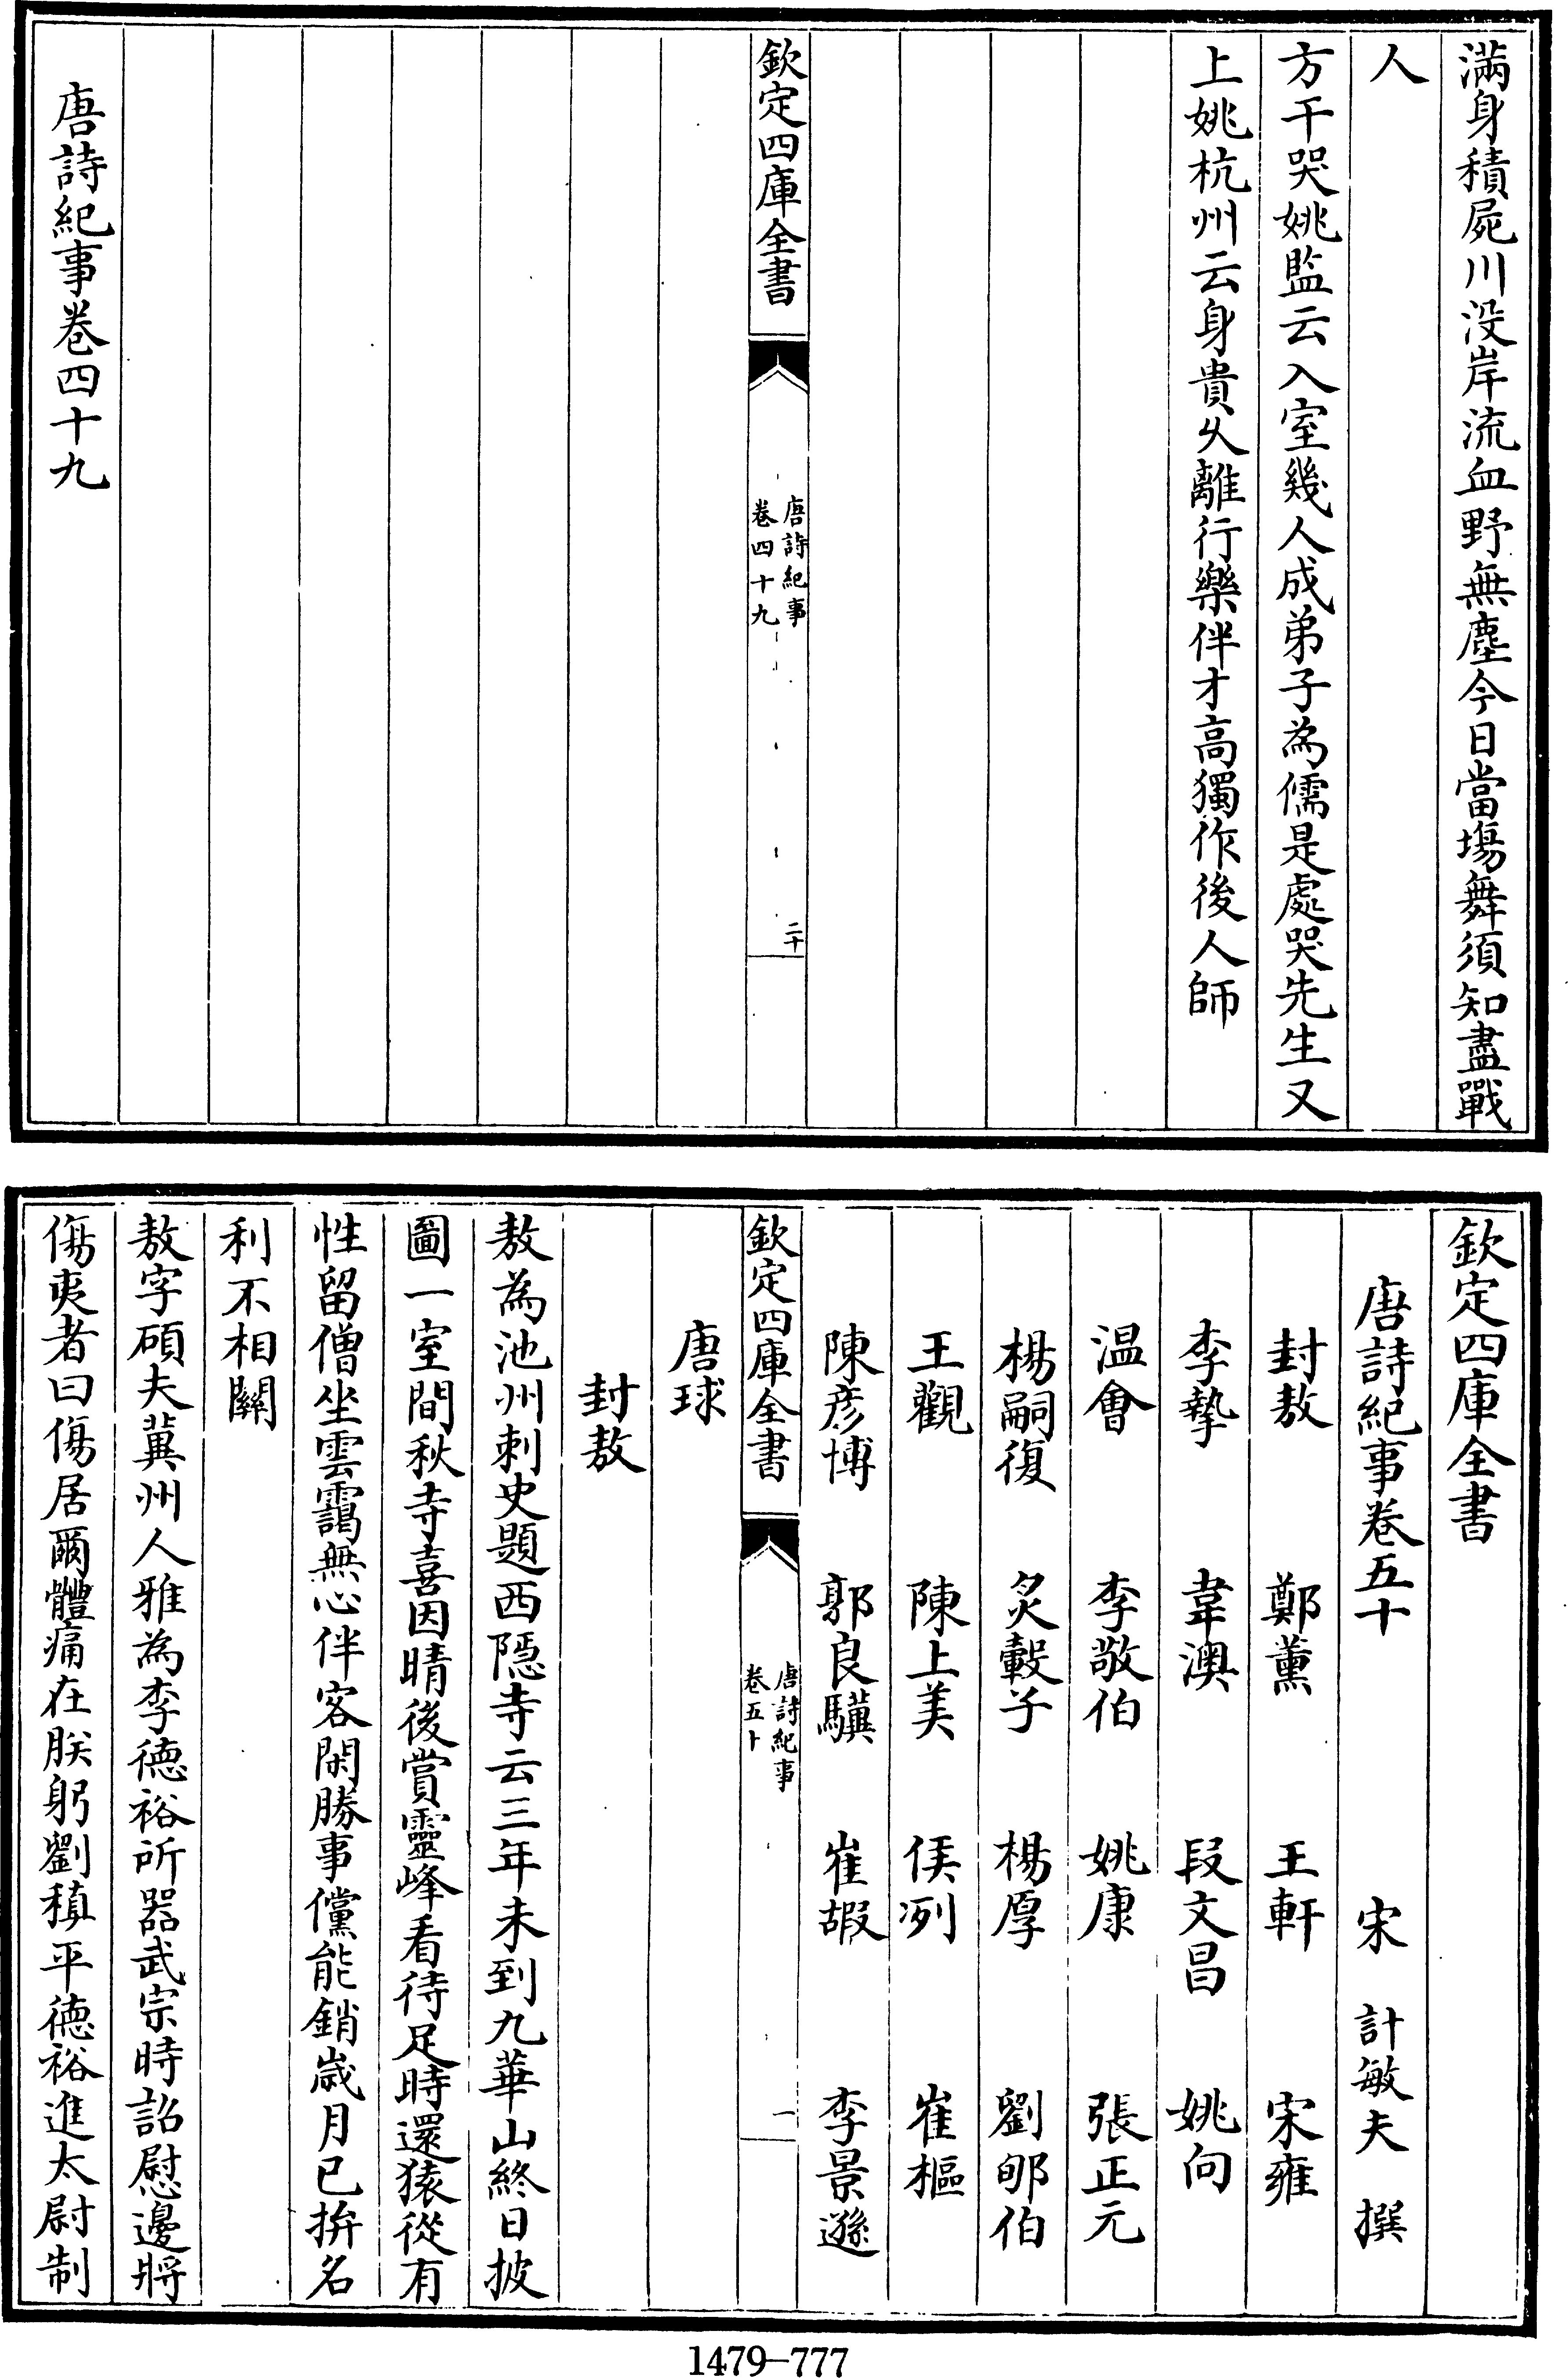 滿身積屍川没岸流血野無塵今日當塲舞須知盡戰
人
方干哭姚監云入室幾人成弟子為儒是處哭先生又
上姚杭州云身貴乆離行樂伴才高獨作後人師
欽定四庫全書
唐詩紀事
卷四十九
二十
唐詩紀事卷四十九
欽定四庫全書
唐詩紀事卷五十
宋 計敏夫 撰
封敖 鄭薰 王軒 宋雍
李摯 韋澳 段文昌 姚向
温會 李敬伯 姚康 張正元
楊嗣復 炙轂子 楊厚 劉郇伯
王觀 陳上美 侯冽 崔樞
陳彦博 郭良驥 崔嘏 李景遜
欽定四庫全書
唐詩紀事
卷五十
一
唐球
封敖
敖為池州刺史題西隠寺云三年未到九華山終日披
圖一室間秋寺喜因晴後賞靈峰看待足時還猿從有
性留僧坐雲靄無心伴客閑勝事儻能銷歳月已拚名
利不相關
敖字碩夫冀州人雅為李徳裕所器武宗時詔慰邊將
傷夷者曰傷居爾體痛在朕躬劉稹平徳裕進太尉制
1479-777